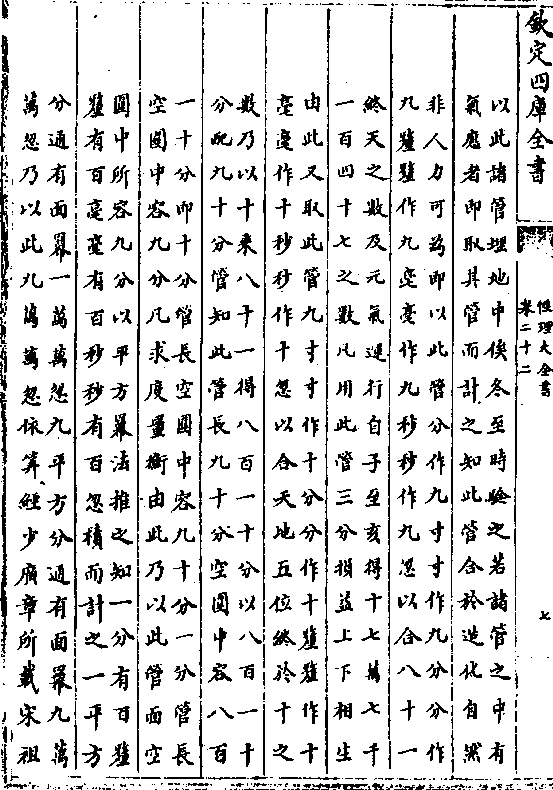 欽定四庫全書
以此諸管埋地中俟冬至時驗之若諸管之中有
氣應者即取其管而計之知此管合於造化自然
非人力可為即以此管分作九寸寸作九分分作
九釐釐作九毫毫作九秒秒作九忽以合八十一
終天之數及元氣運行自子至亥得十七萬七千
一百四十七之數凡用此管三分損益上下相生
由此又取此管九寸寸作十分分作十釐釐作十
毫毫作十秒秒作十忽以合天地五位終於十之
數乃以十乗八十一得八百一十分以八百一十
分配九十分管知此管長九十分空圍中容八百
一十分即十分管長空圍中容九十分一分管長
空圍中容九分凡求度量衡由此乃以此管面空
圍中所容九分以平方羃法推之知一分有百釐
釐有百毫毫有百秒秒有百忽積而計之一平方
分通有面羃一萬萬忽九平方分通有面羃九萬
萬忽乃以此九萬萬忽依算經少廣章所載宋祖
性理大全書
卷二十二
七